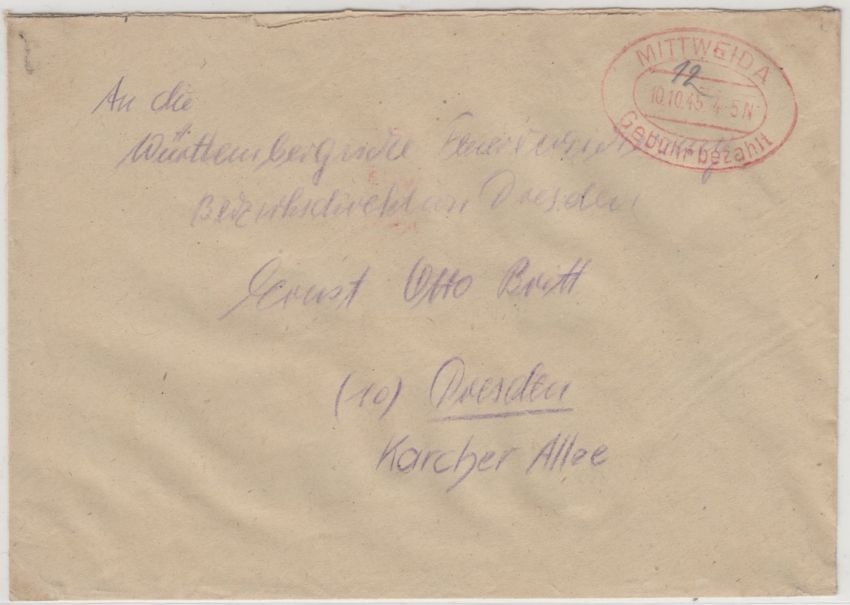 MITTWEIDA
12
10.10.45 4-5N
Gebühr bezahlt
An die
Württembergische
Bezirksdirektion Dresden
Ernst Otto Britt
(10) Dresden
Karcher Allee